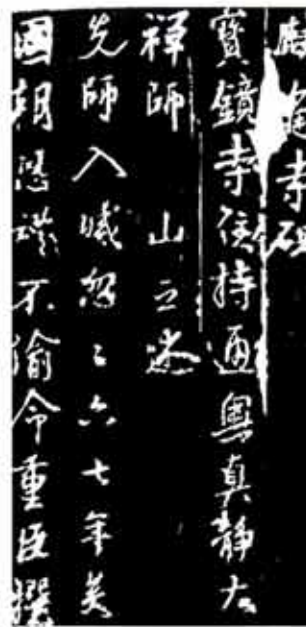 寺碑
寶鏡寺住持通奧真靜大
禪師 山立述
先師入滅忽〻六七年矣
國朝恐讜不渝命重臣撰